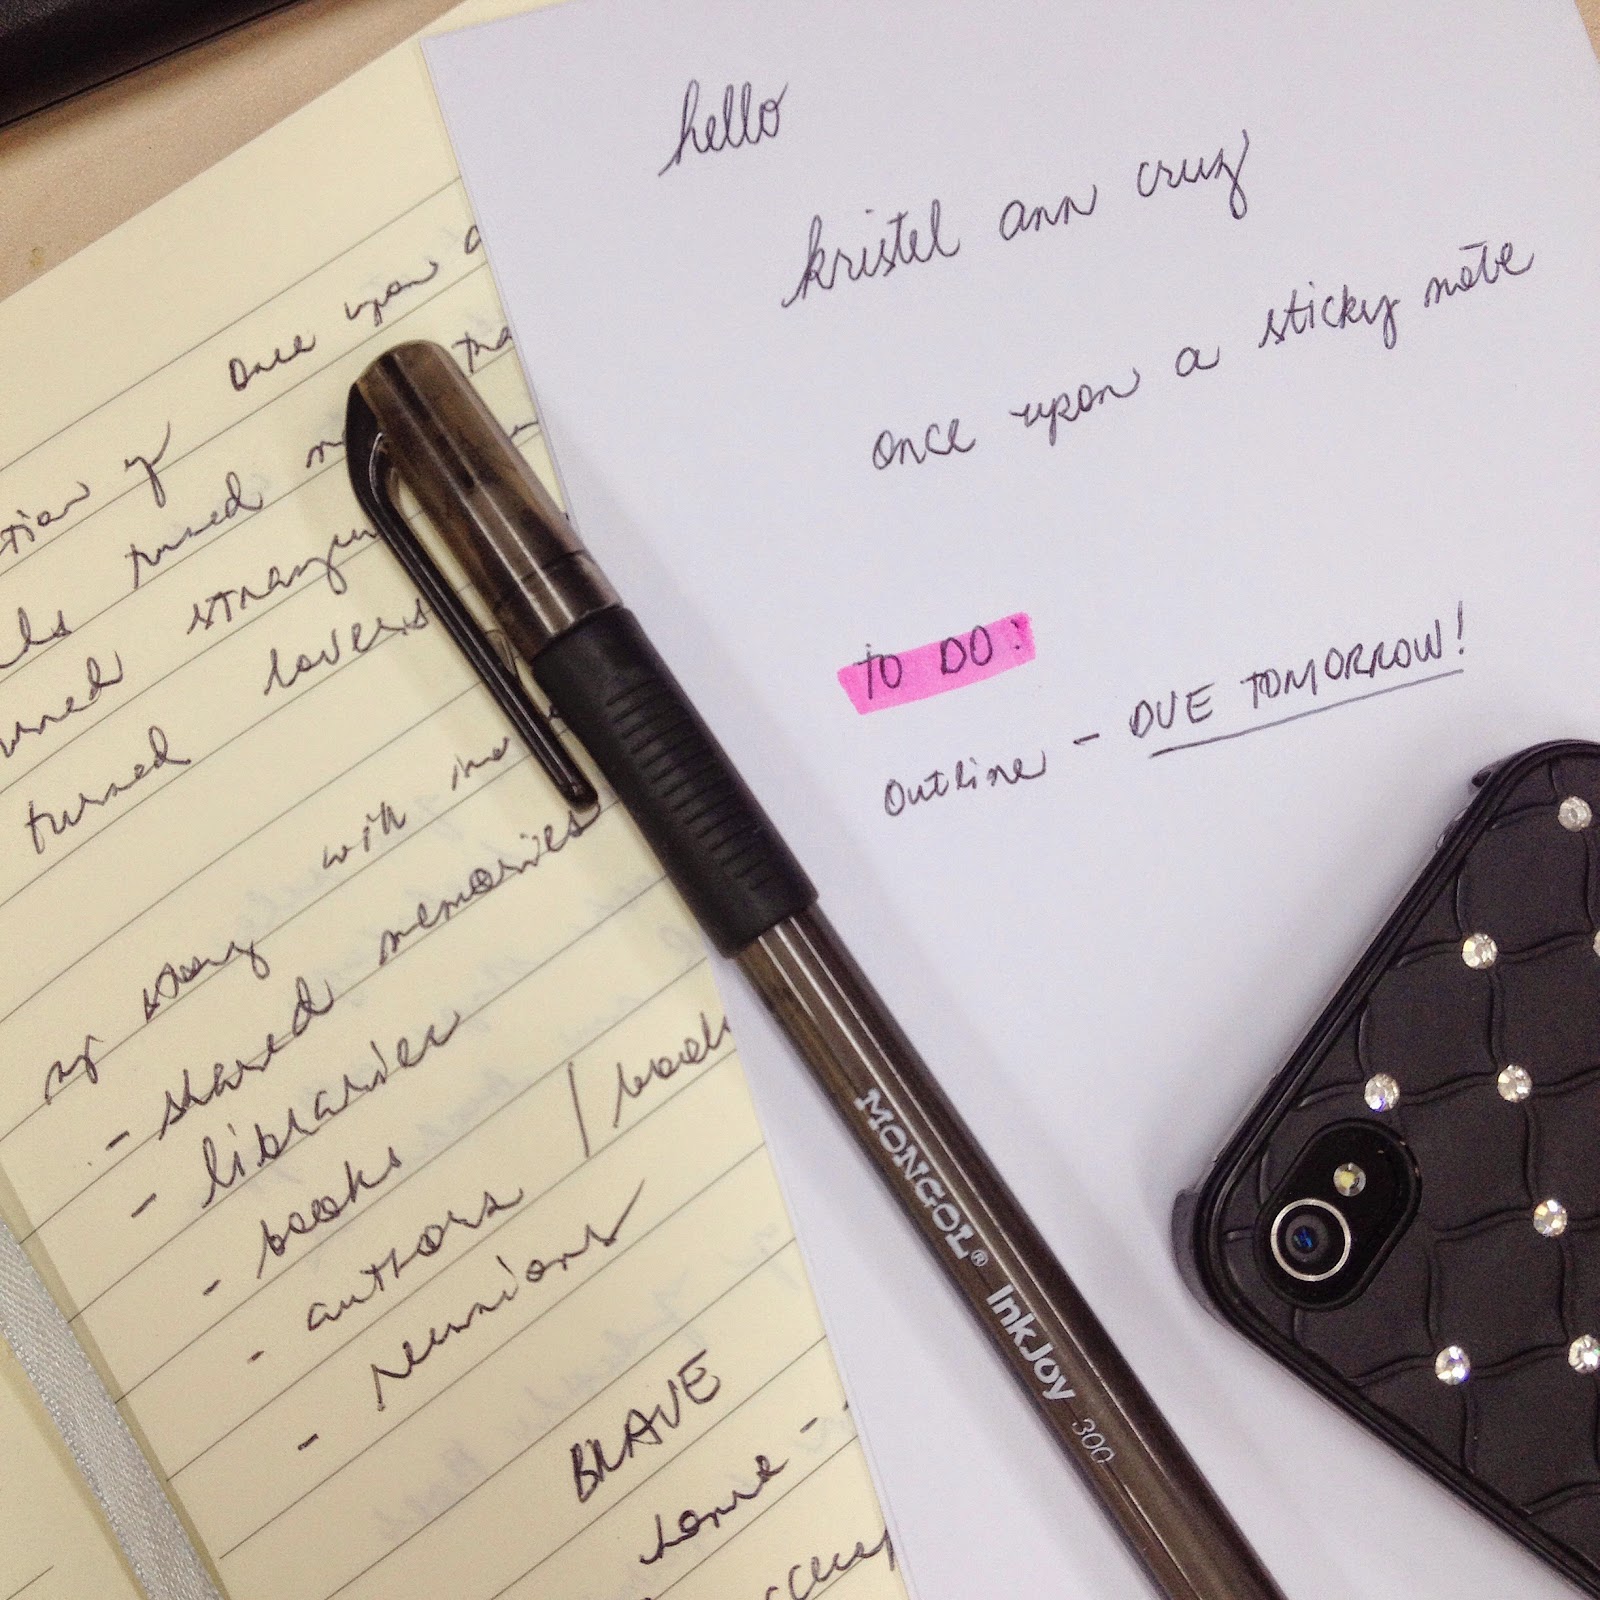 once upon
turned
turned lovers
story with
- shared memories
- libraries
- books
- authors / book
- reunions
BRAVE
home -
hello
kristel ann cruz
once upon a sticky note
TO DO:
Outline - DUE TOMORROW!
MONGOL® InkJoy 300